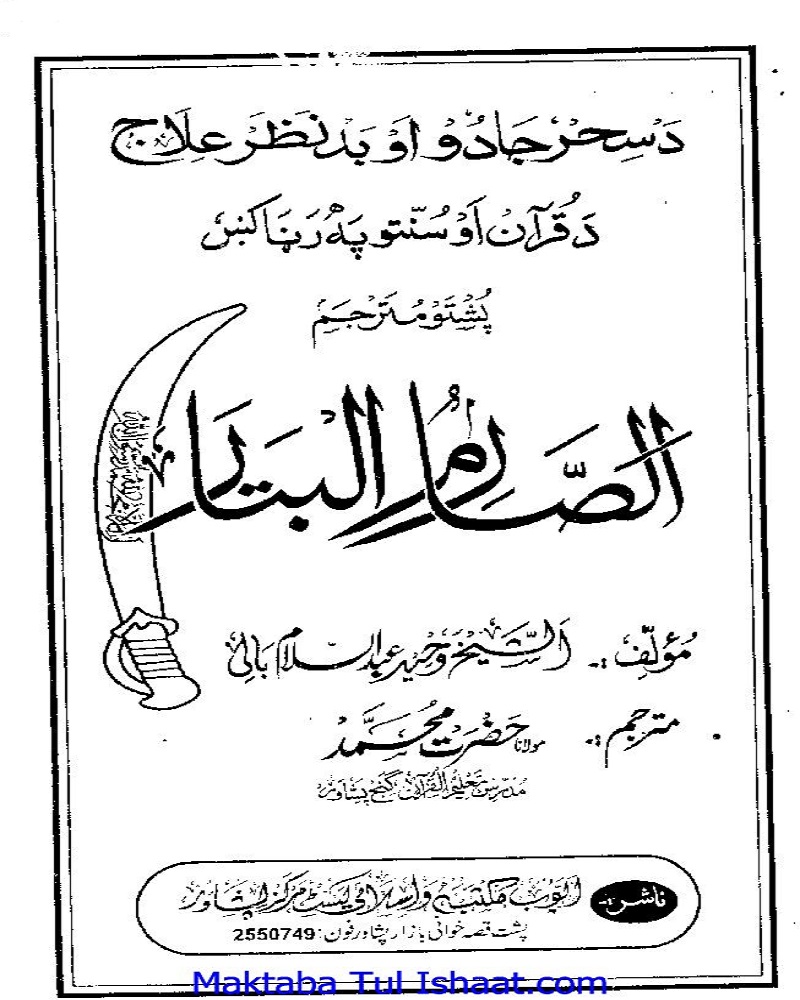 دَسِحْر جَادُو اَو بَدنَظَر عِلَاج
دَ قُرآن اَوْ سُنّتو پَه رَنړا کښې
پُښتو مُتَرجَم
اَلصَّارِمُ البَتَار
مُؤلّف:- اَلشَّيخ وَحِيد عبدالسلام بَالِی
مترجم:- مولانا حَضْرَت مُحَمَّد
مُدَرِس تعليم القرآن گنج پشاور
ناشر:- ايوب مکتبه و اسلامی کيسٹ مرکز پشاور
پشت قصه خوانی بازار پشاور فون: 2550749
Maktaba Tul Ishaat.com